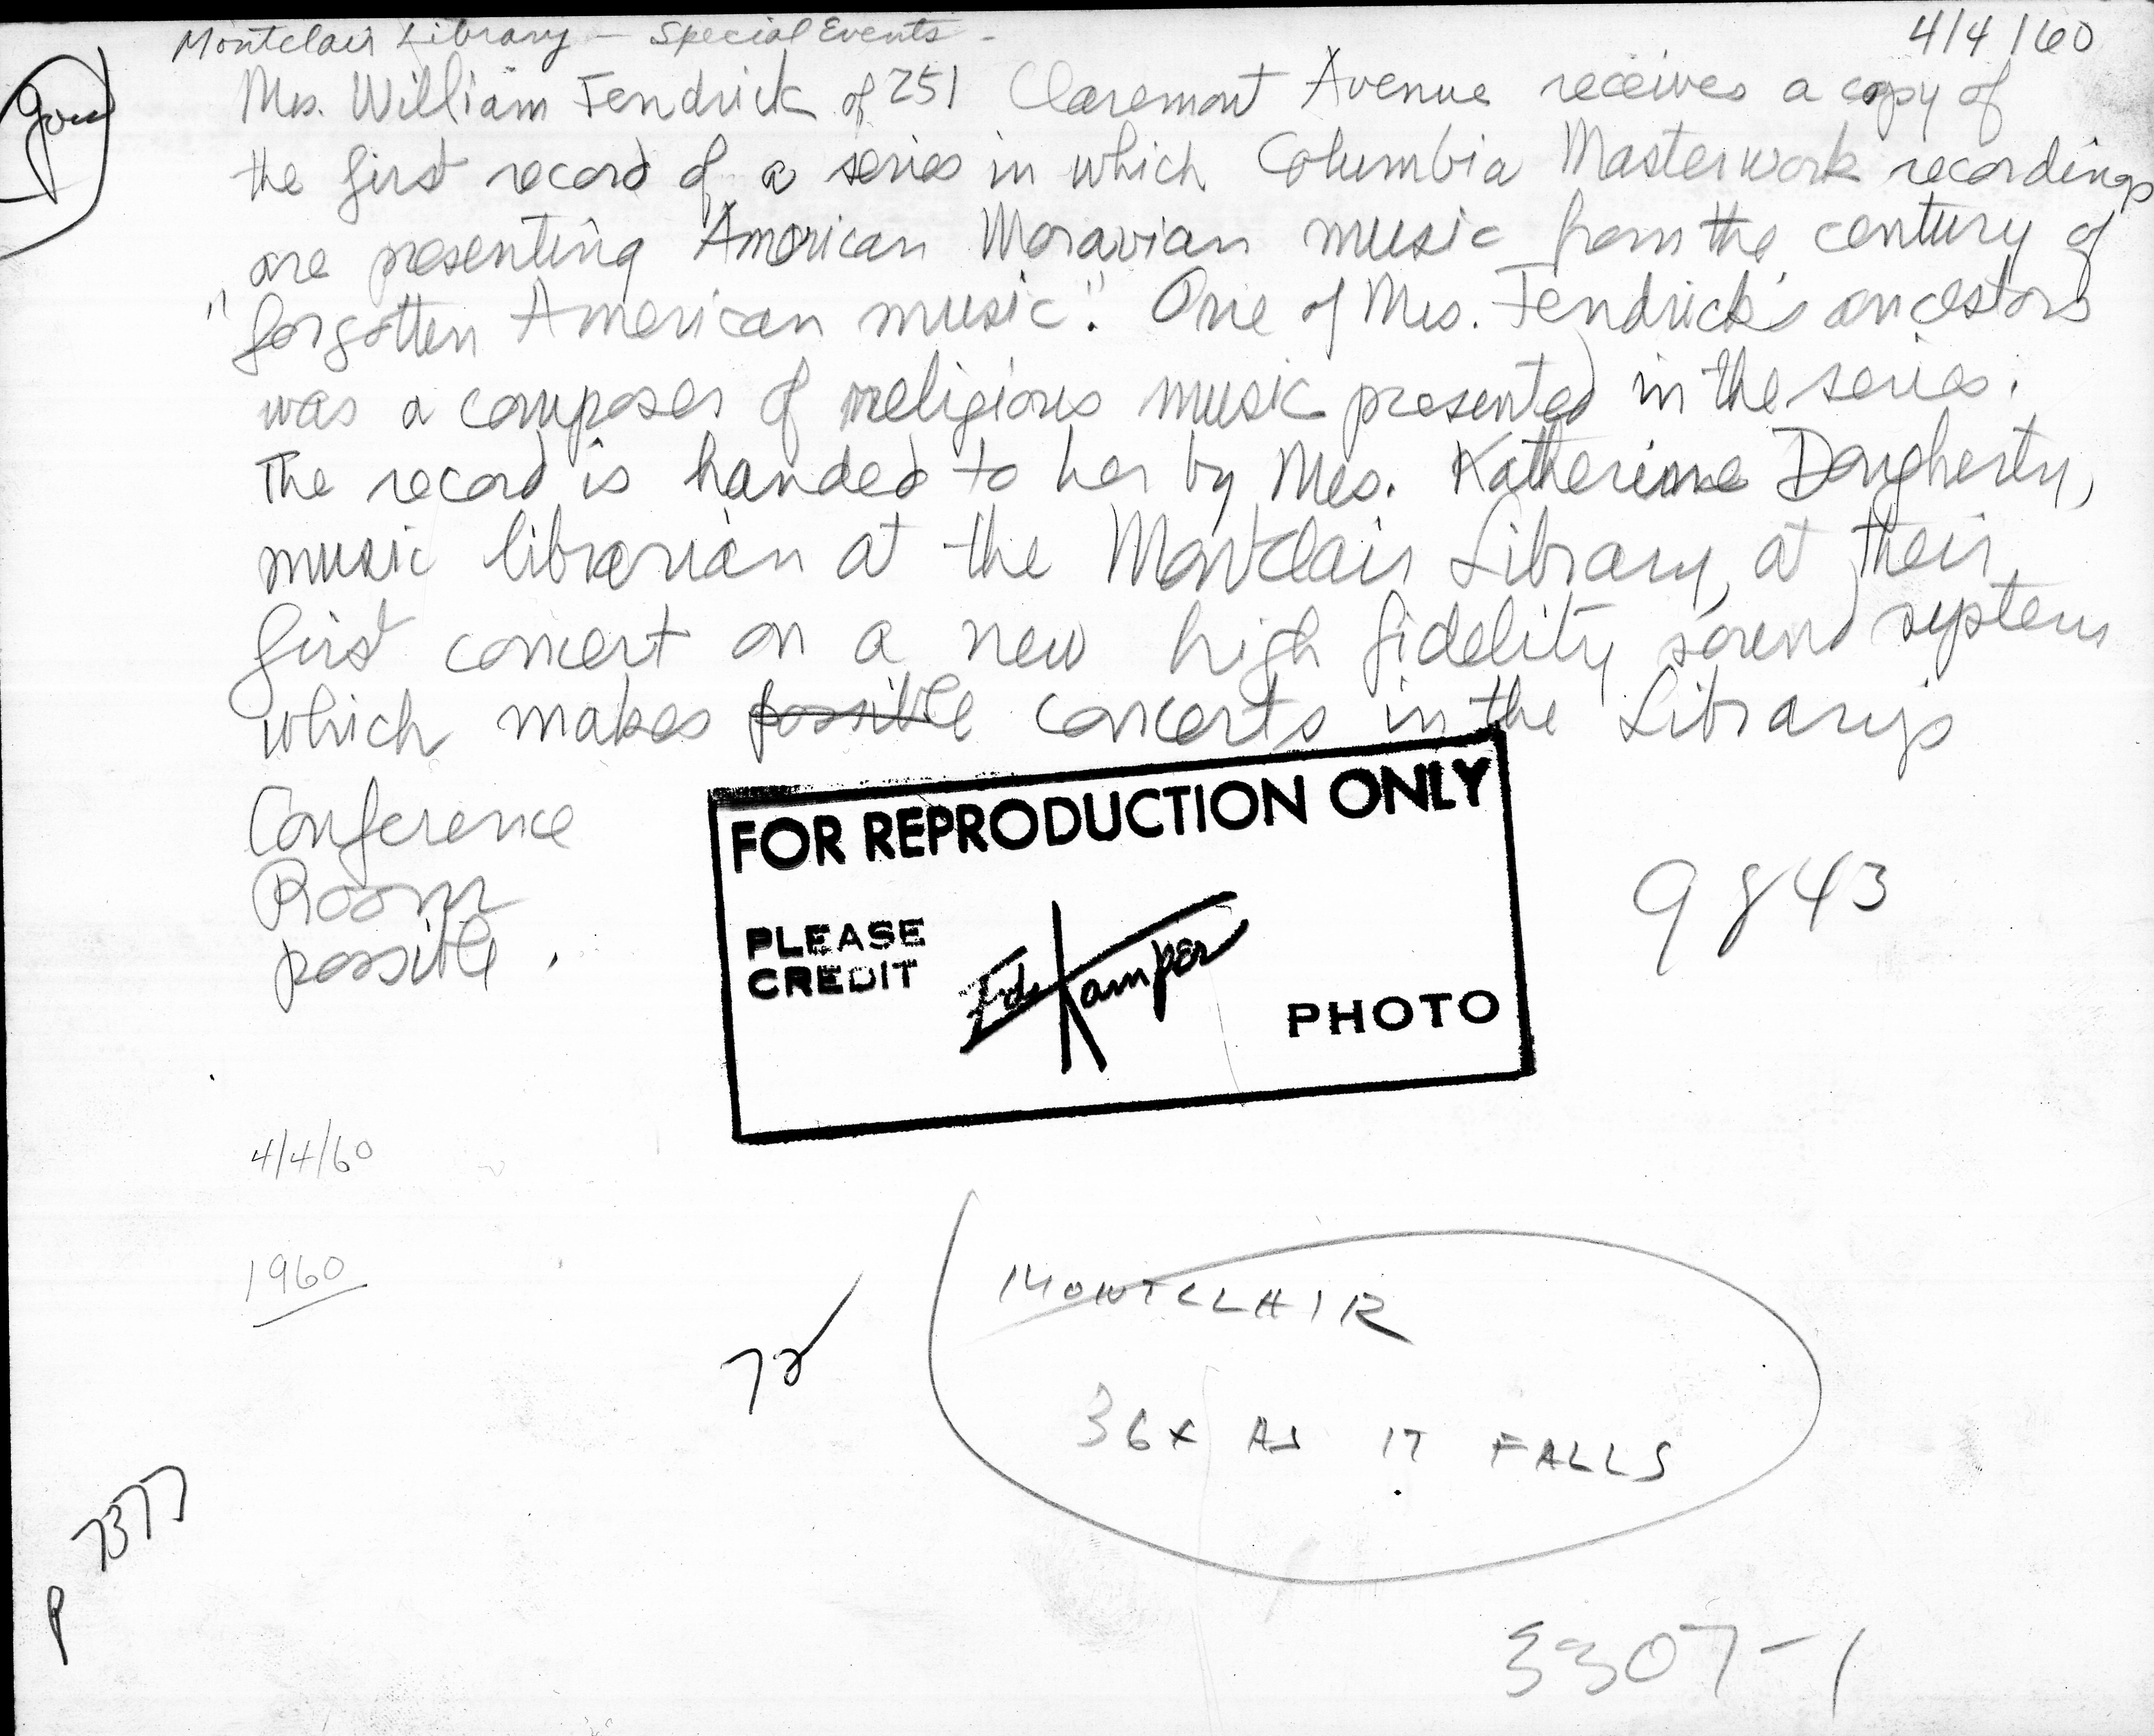 Montclair Library - Special Events - 4/4/60
Mrs. William Fendrick of 251 Claremont Avenue receives a copy of
the first record of a series in which Columbia Masterwork recordings
are presenting American Moravian music from the century of
"forgotten American music". One of Mrs. Fendrick's ancestors
was a composer of religious music presented in the series.
The record is handed to her by Mrs. Katherine Dougherty,
music librarian at the Montclair Library, at their
first concert on a new high fidelity sound system
which makes possible concerts in the Library's
Conference
Room
possible.
FOR REPRODUCTION ONLY
PLEASE
CREDIT
Kamper
PHOTO
9843
4/4/60
1960
72
MONTCLAIR
36X AS IT FALLS
P 7377
3307-1